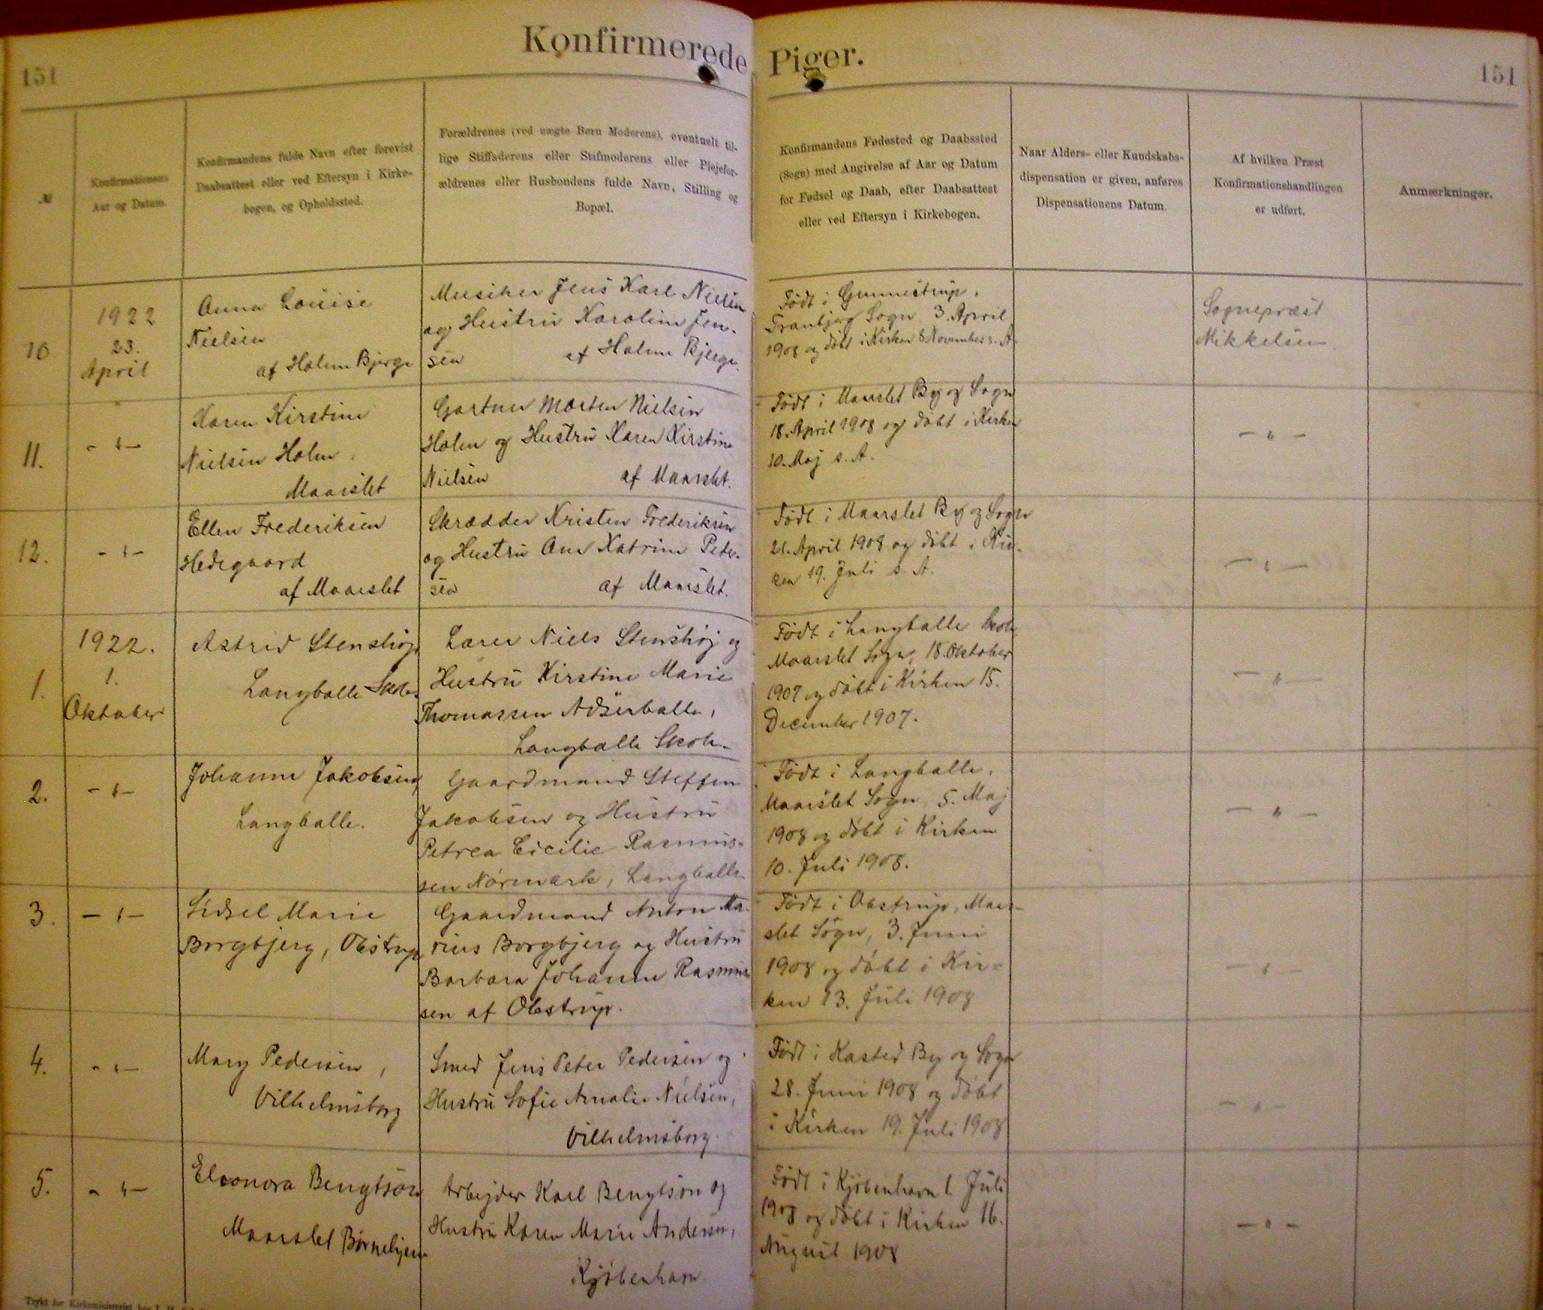 151
Konfirmerede Piger.
151
№
Konfirmationens
Aar og Datum.
Konfirmandens fulde Navn efter forevist
Daabsattest eller ved Eftersyn i Kirke-
bogen, og Opholdssted.
Forældrenes (ved uægte Børn Moderens), eventuelt til-
lige Stiffaderens eller Stifmoderens eller Plejefor-
ældrenes eller Husbondens fulde Navn, Stilling og
Bopæl.
Konfirmandens Fødested og Daabssted
(Sogn) med Angivelse af Aar og Datum
for Fødsel og Daab, efter Daabsattest
eller ved Eftersyn i Kirkebogen.
Naar Alders- eller Kundskabs-
dispensation er given, anføres
Dispensationens Datum.
Af hvilken Præst
Konfirmationshandlingen
er udført.
Anmærkninger.
10
1922
23.
April
Anna Louise
Nielsen
af Holme Bjerge
Musiker Jens Karl Nielsen
og Hustru Karoline Jen-
sen af Holme Bjerge.
Født i Gunnestrup,
Tranbjerg Sogn 3. April
1908 og døbt i Kirken 8 November s. A.
Sognepræst
Mikkelsen
11.
- " -
Karen Kirstine
Nielsen Holm,
Maarslet
Gartner Morten Nielsen
Holm og Hustru Karen Kirstine
Nielsen af Maarslet.
Født i Maarslet By og Sogn
18. April 1908 og døbt i Kirken
10. Maj s. A.
- " -
12.
- " -
Ellen Frederiksen
Hedegaard
af Maarslet
Skrædder Kristen Frederiksen
og Hustru Ane Katrine Peter-
sen af Maarslet.
Født i Maarslet By og Sogn
21. April 1908 og døbt i Kir-
ken 19. Juli s. A.
- " -
1.
1922.
1.
Oktober
Astrid Stenshøj,
Langballe Skole.
Lærer Niels Stenshøj og
Hustru Kirstine Marie
Thomassen Adserballe,
Langballe Skole.
Født i Langballe Skole
Maarslet Sogn, 18. Oktober
1907 og døbt i Kirken 15.
December 1907.
- " -
2.
- " -
Johanne Jakobsen,
Langballe.
Gaardmand Steffen
Jakobsen og Hustru
Petrea Cicilie Rasmus-
sen Nørmark, Langballe.
Født i Langballe,
Maarslet Sogn, 5. Maj
1908 og døbt i Kirken
10. Juli 1908.
- " -
3.
- " -
Sidsel Marie
Borgbjerg, Obstrup
Gaardmand Anton Ma-
rius Borgbjerg og Hustru
Barbara Johanne Rasmus-
sen af Obstrup.
Født i Obstrup, Maar-
slet Sogn, 3. Juni
1908 og døbt i Kir-
ken 13. Juli 1908
- " -
4.
- " -
Mary Pedersen,
Vilhelmsborg
Smed Jens Peter Pedersen og
Hustru Sofie Amalie Nielsen,
Vilhelmsborg.
Født i Kasted By og Sogn
28. Juni 1908 og døbt
i Kirken 19. Juli 1908
- " -
5.
- " -
Eleonora Bengtson
Maarslet Børnehjem
Arbejder Karl Bengtson og
Hustru Karen Marie Andersen,
Kjøbenhavn
Født i Kjøbenhavn 1. Juli
1908 og døbt i Kirken 16.
August 1908
- " -
Trykt for Kirkeministeriet